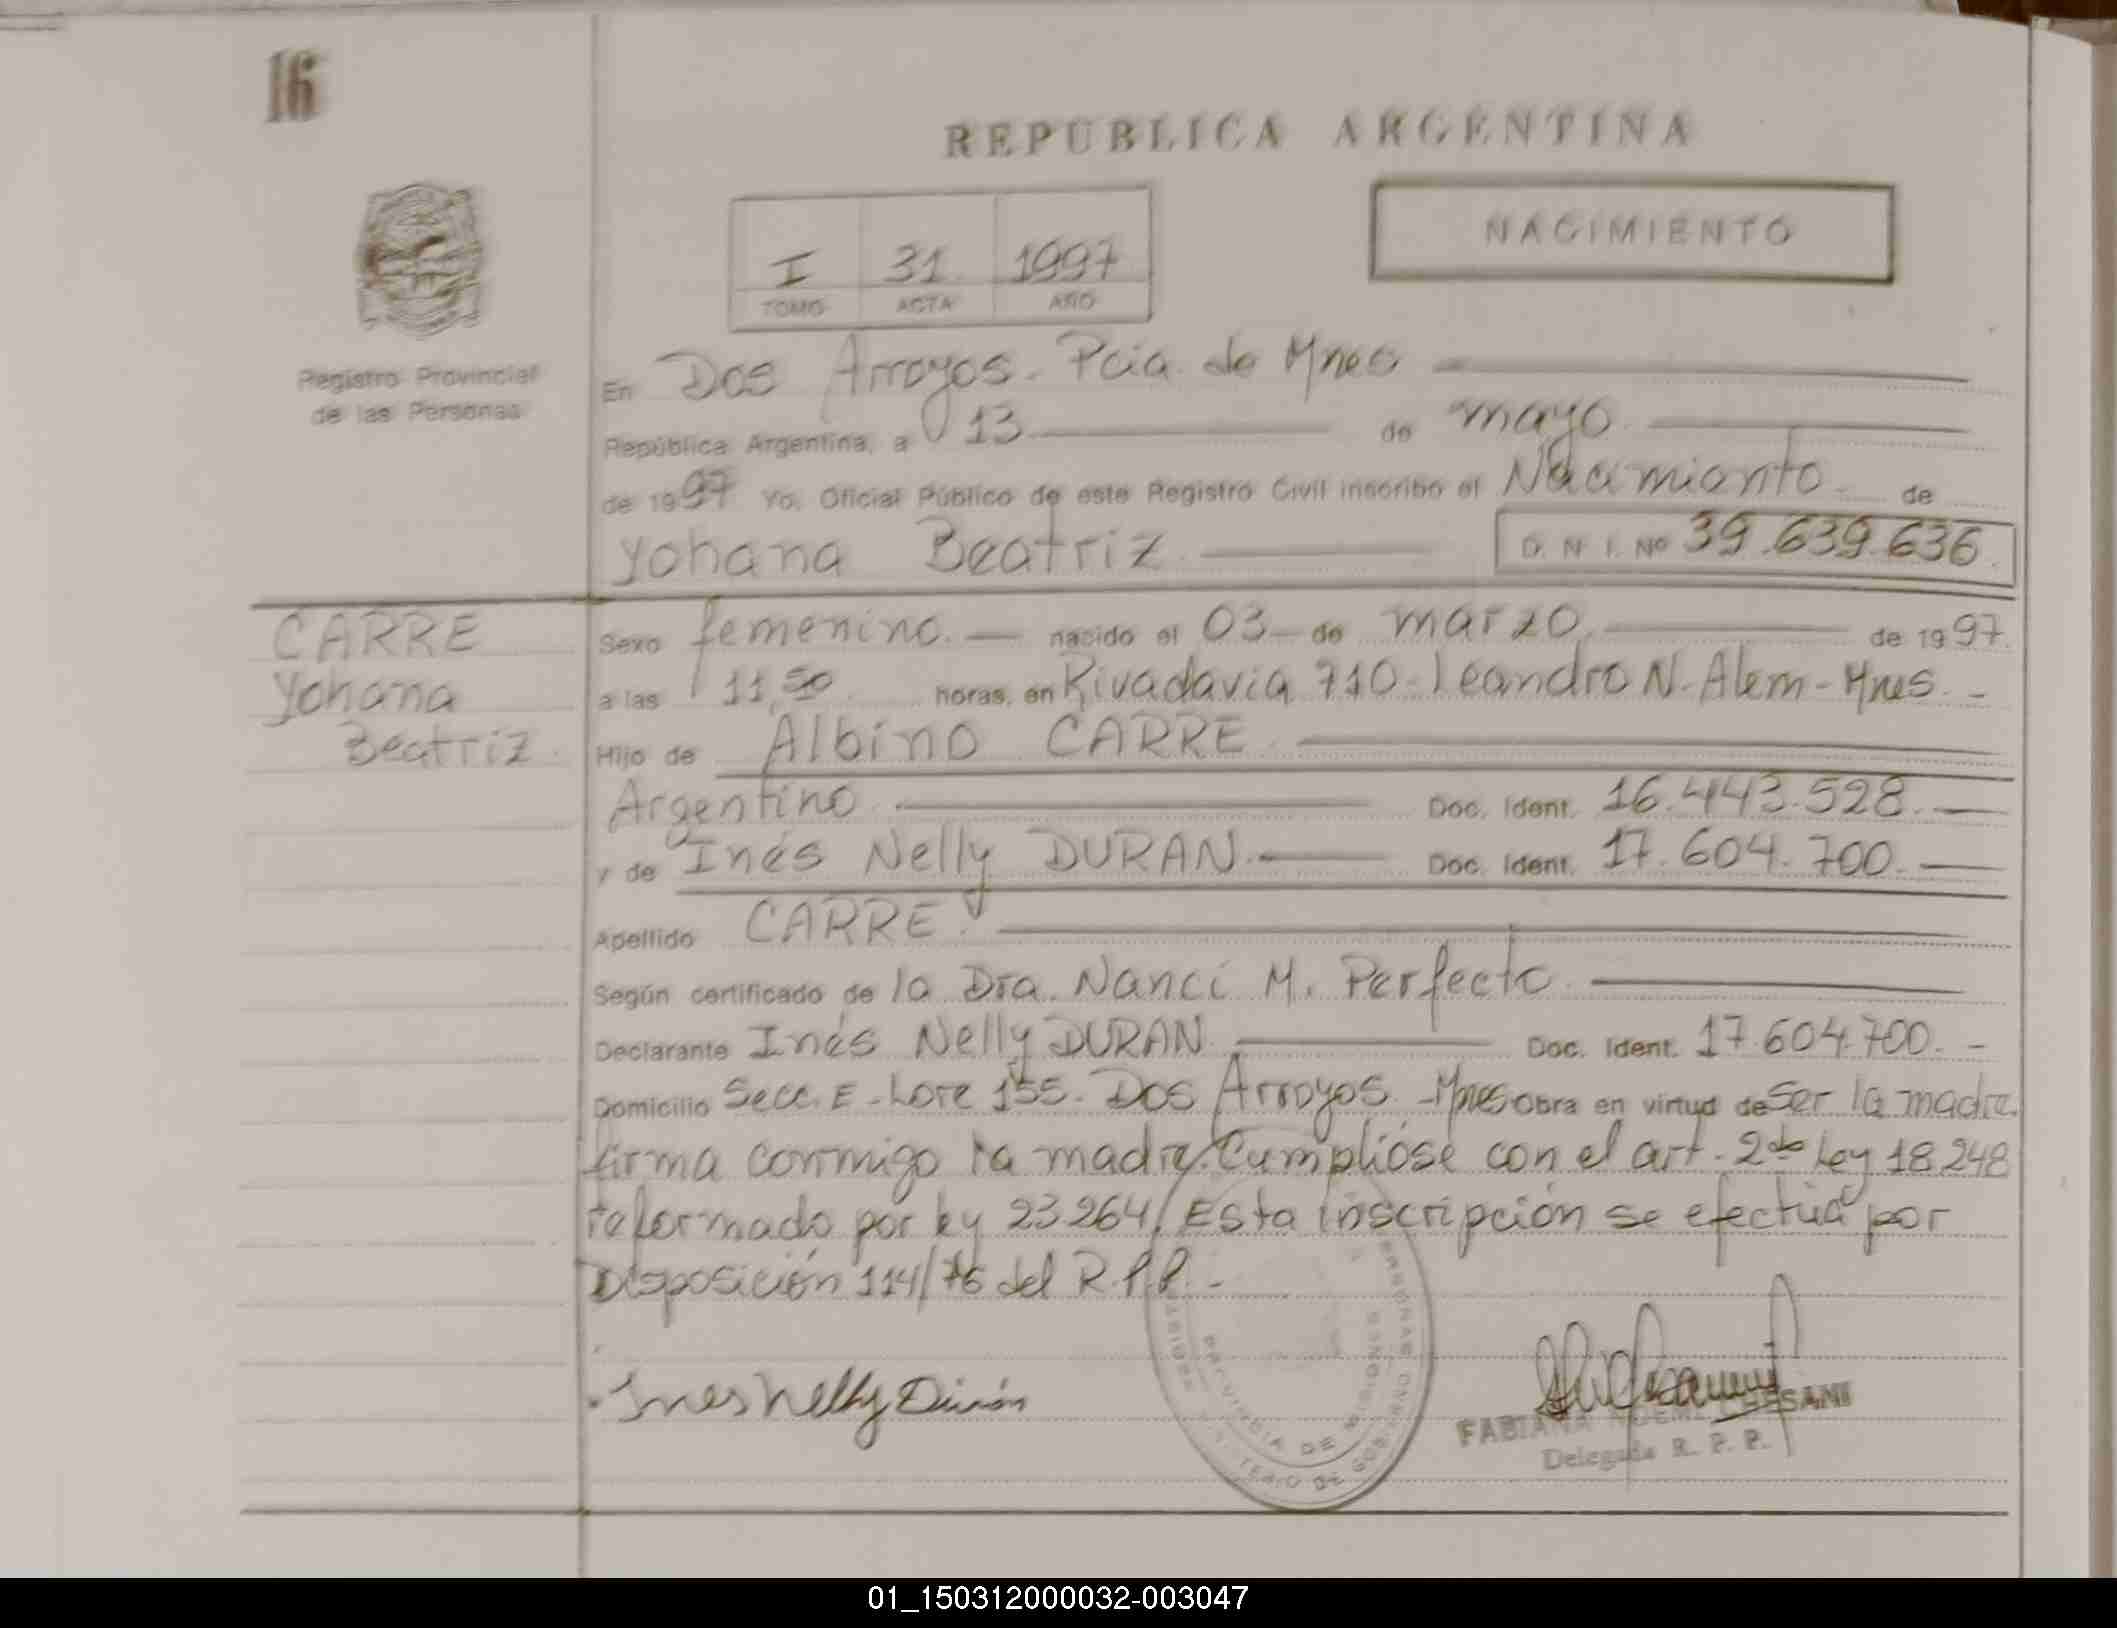 16
REPUBLICA ARGENTINA
NACIMIENTO
I 31 1997
TOMO ACTA AÑO
Registro Provincial
de las Personas
En Dos Arroyos. Pcia. de Mnes
República Argentina, a 13 de mayo
de 1997 Yo, Oficial Público de este Registro Civil inscribo el Nacimiento de
Yohana Beatriz. D. N. I. Nº 39.639.636.
CARRE
Yohana
Beatriz.
Sexo femenino. nacido el 03 de marzo de 1997.
a las 11,50 horas, en Rivadavia 710-Leandro N. Alem-Mnes.-
Hijo de Albino CARRE.
Argentino Doc. Ident. 16.443.528.
y de Inés Nelly DURAN. Doc. Ident. 17.604.700.
Apellido CARRE.
Según certificado de la Dra. Nanci M. Perfecto.
Declarante Inés Nelly DURAN Doc. Ident. 17.604.700.-
Domicilio Secc. E-Lote 155. Dos Arroyos-Mnes Obra en virtud de Ser la madre.
firma conmigo la madre. Cumplióse con el art. 2 de Ley 18.248
reformado por ley 23.264. Esta inscripción se efectúa por
Disposición 114/76 del R.P.P.-
Ines Nelly Durán
PROVINCIA DE MISIONES
FABIANA NOEMI
Delegada R. P. P.
01_150312000032-003047